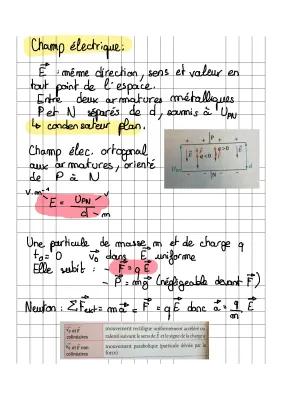 Champ électrique:
E⃗ : même direction, sens et valeur en
tout point de l'espace.
Entre deux armatures métalliques
P et N séparés de d, soumis à U_PN
↳ condensateur plan.
Champ élec. ortogonal
aux armatures, orienté
de P à N
P
E⃗ q<0 q>0 E⃗
d
N
V.m⁻¹ E = U_PN / d V m
Une particule de masse m et de charge q
t₀ = 0 v⃗₀ dans E⃗ uniforme
Elle subit : - F⃗ = q E⃗
- P⃗ = mg⃗ (négligeable devant F⃗)
Newton : ΣF⃗ext = m a⃗ = F⃗ = q E⃗ donc a⃗ = q/m E⃗
v⃗₀ et E⃗ colinéaires
mouvement rectiligne uniformément accéléré ou
ralenti suivant le sens de E⃗ et le signe de la charge q
v⃗₀ et E⃗ non colinéaires
mouvement parabolique (particule déviée par la
force)